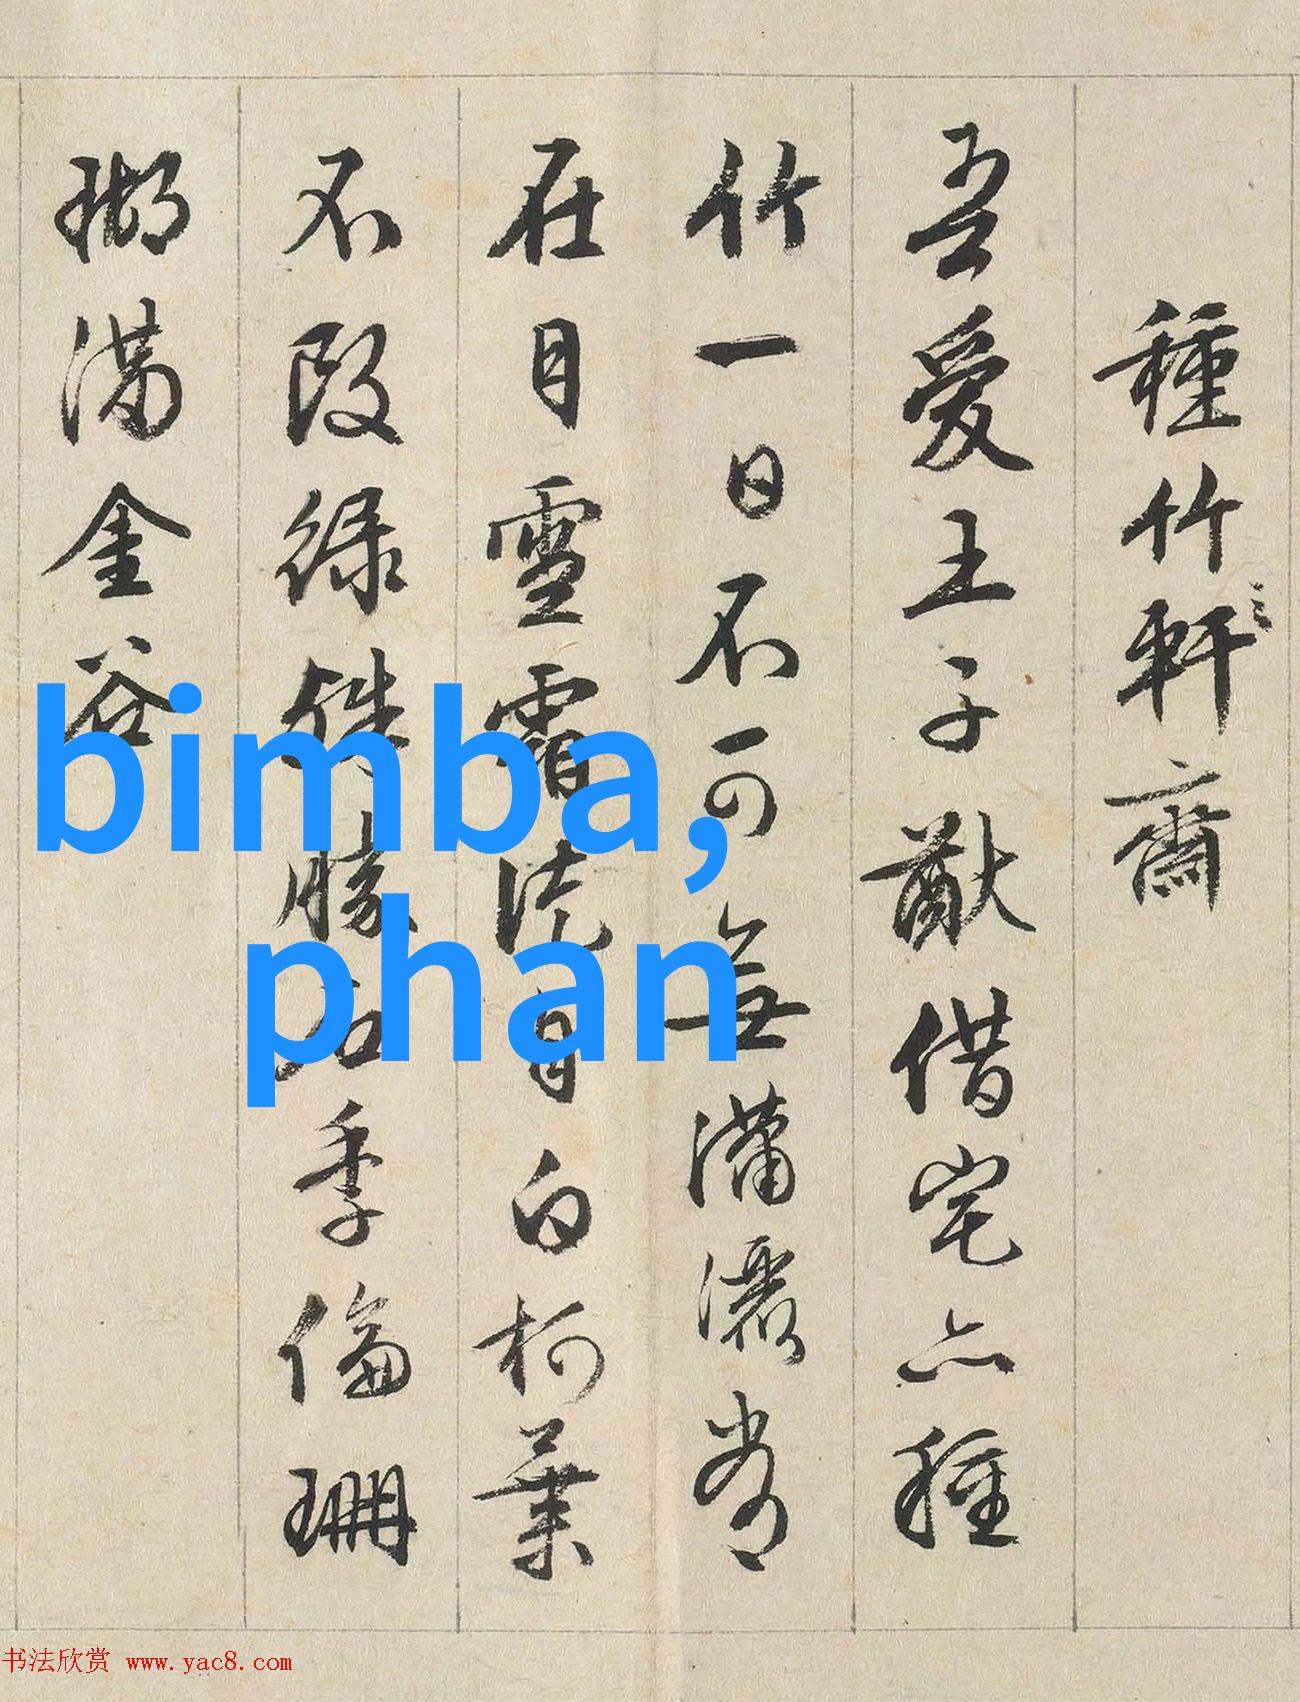 種竹軒齋
吾愛王子猷借宅亦種
竹一日不可無瀟灑常
在目雪霜徒自白柯葉
不改綠殊勝石季倫珊
瑚滿金谷
bimba,
phan
书法欣赏 www.yac8.com